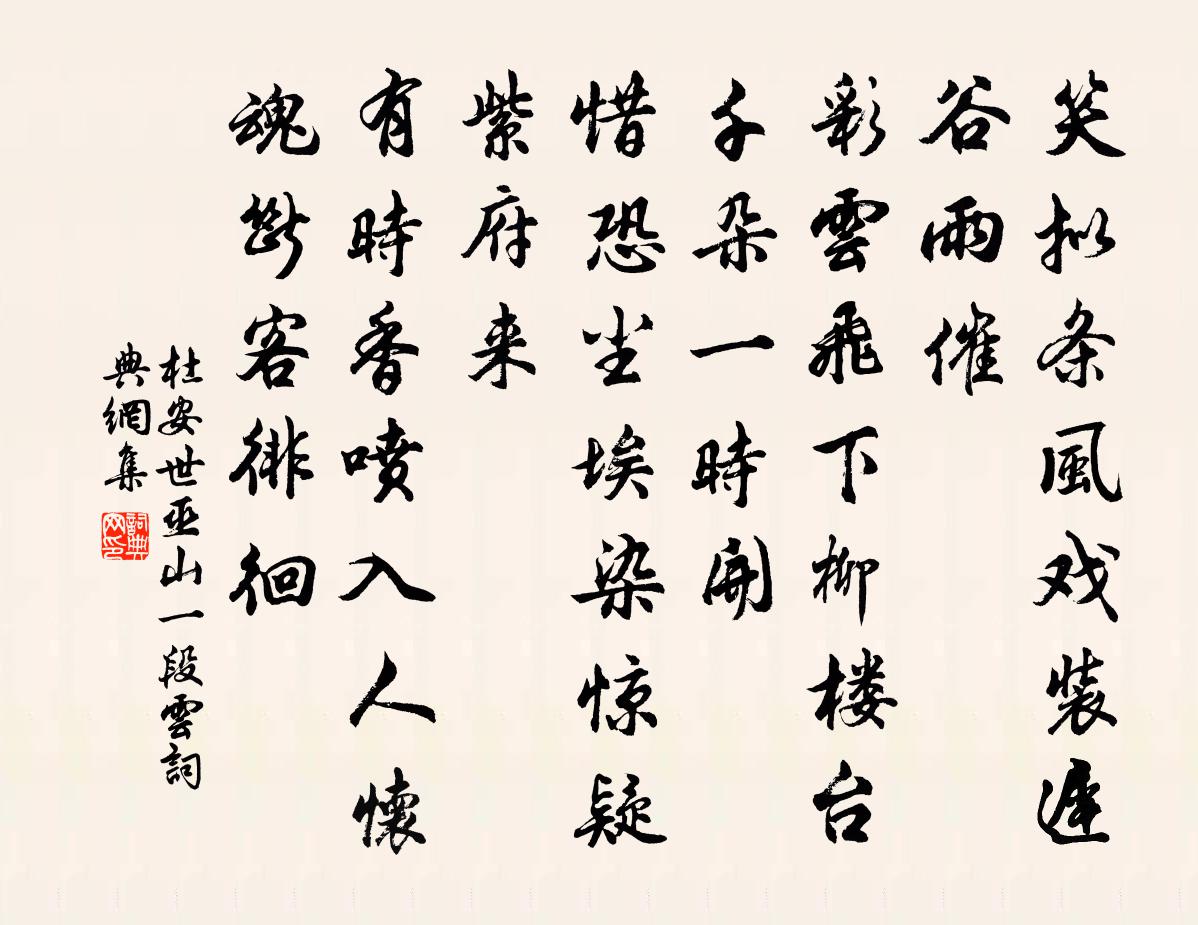 笑拟条風戏裝遲
谷雨催
彩雲飛下柳楼台
千朵一時開
惜恐尘埃染惊疑
紫府来
有時香喷入人懷
魂斷客徘徊
杜安世巫山一段雲詞
典網集
詞典
网印